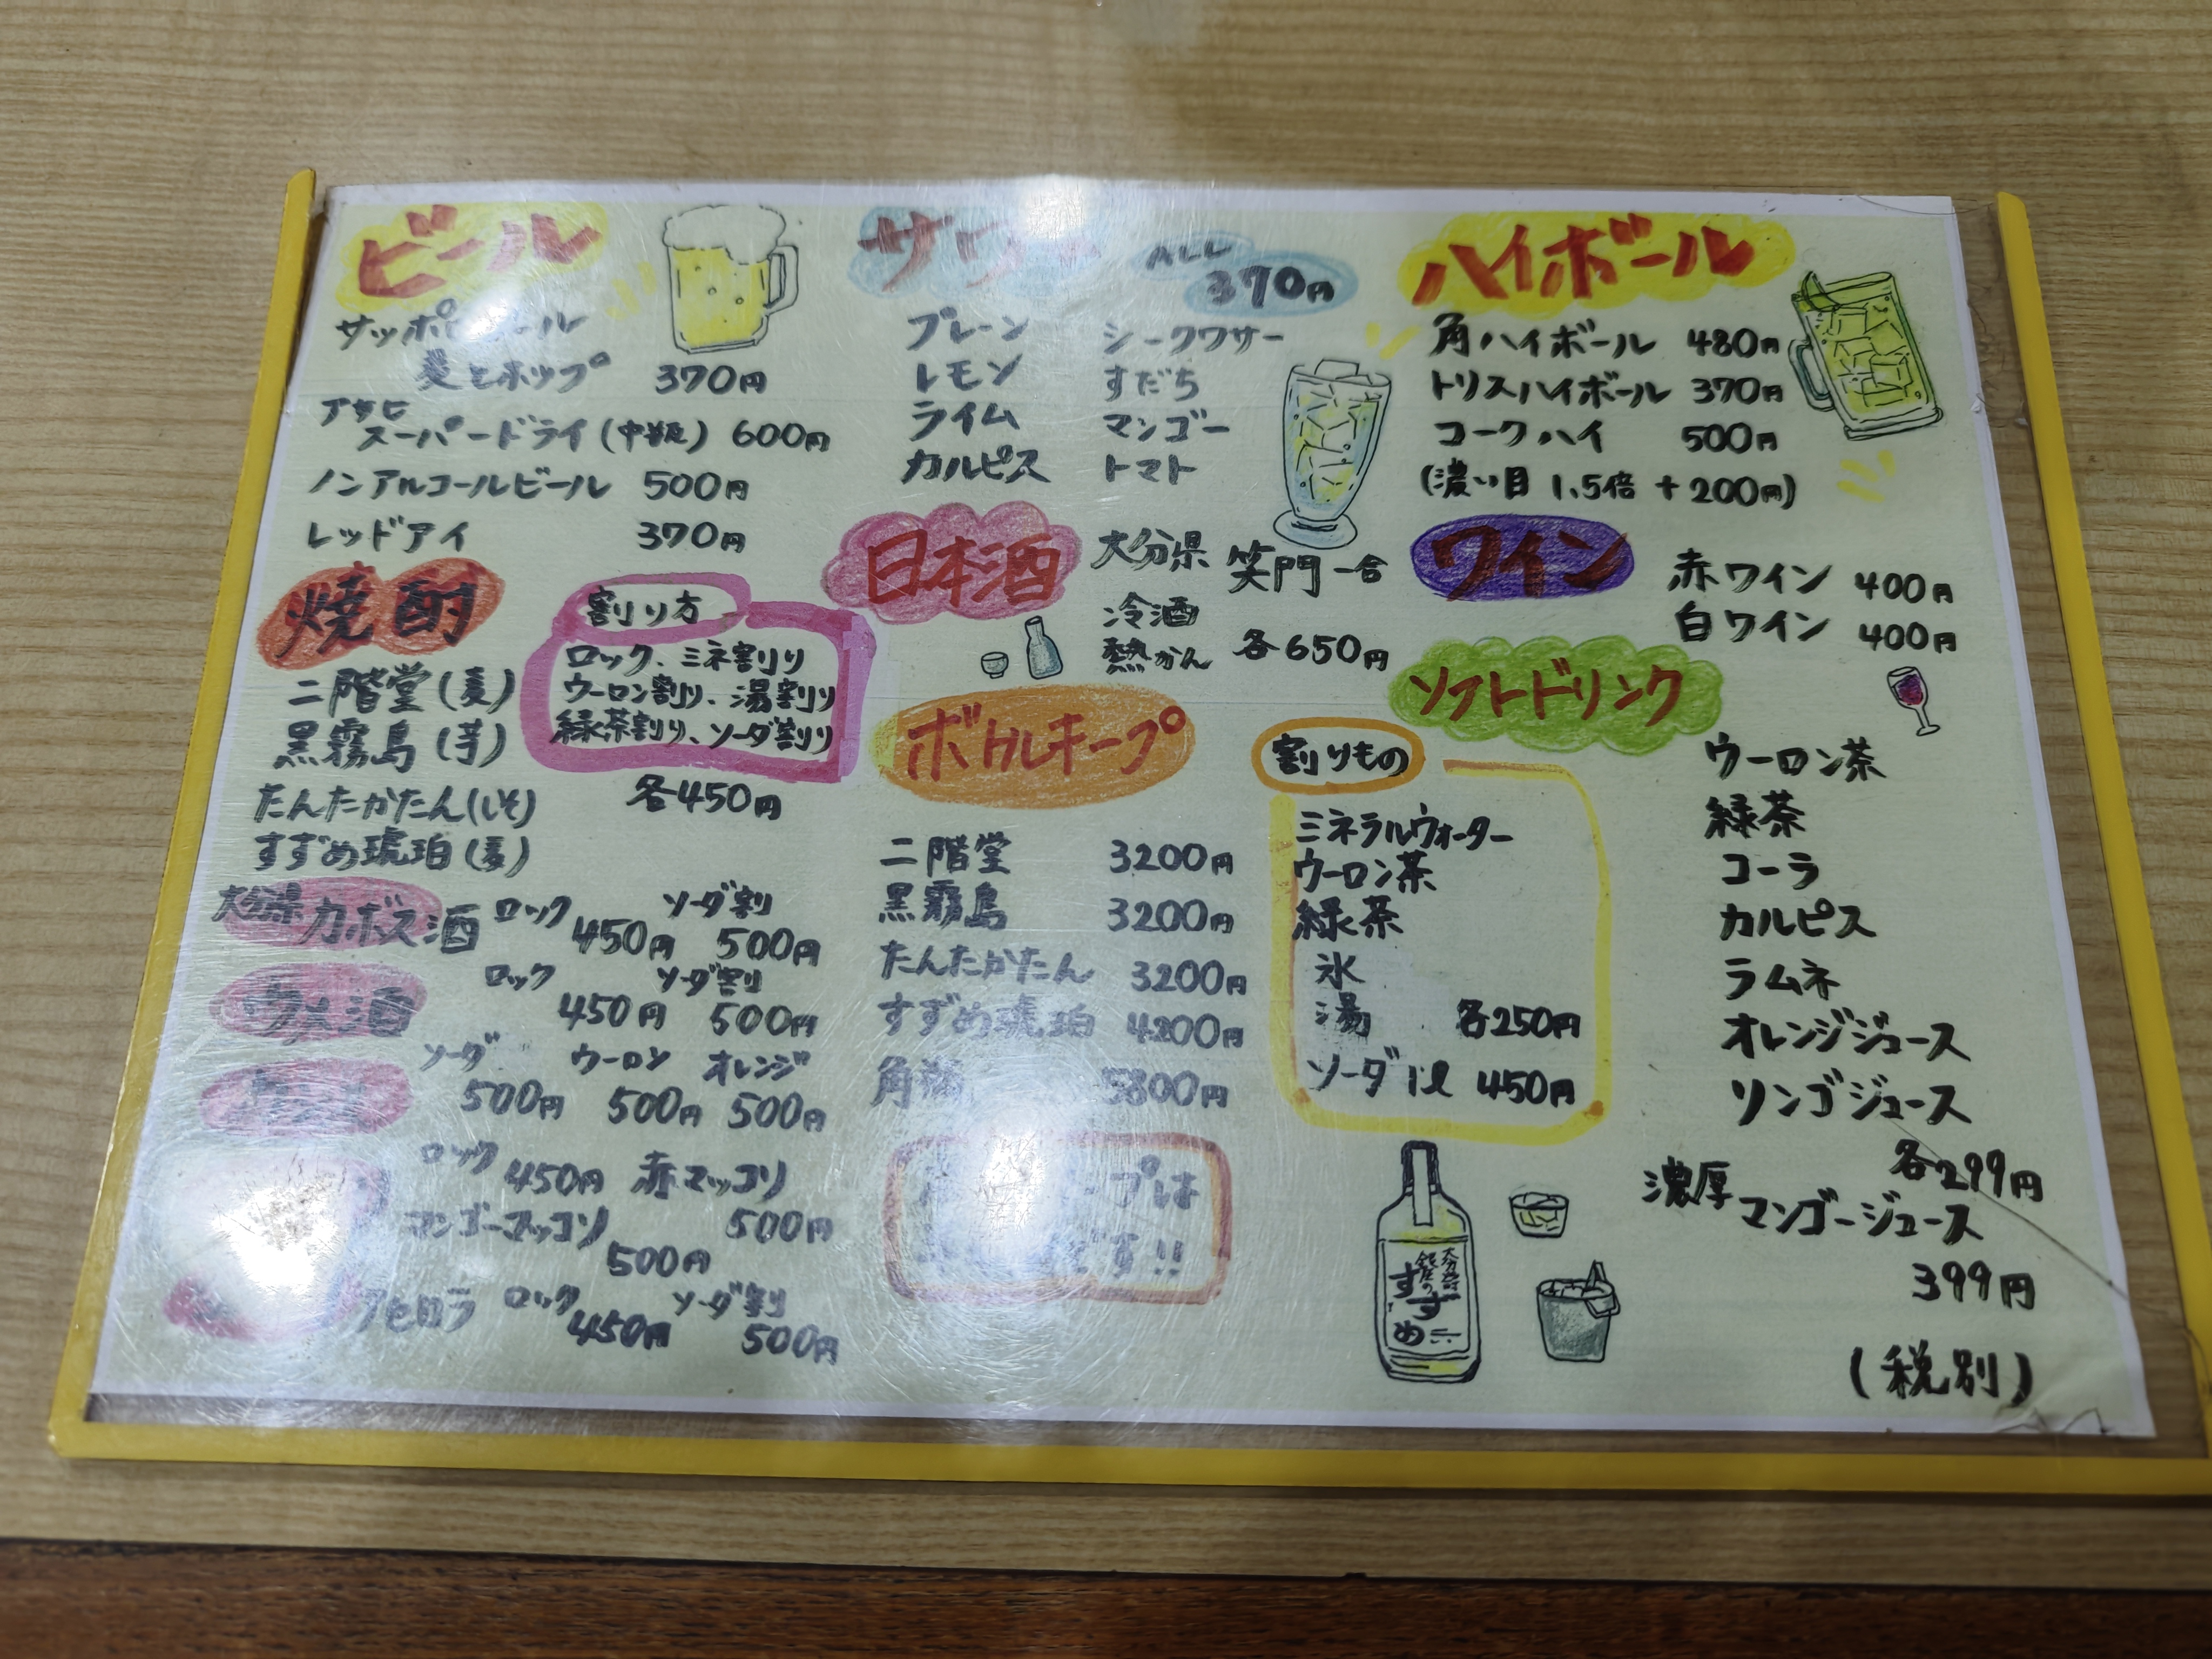 ビール
サッポロビール
麦とホップ 370円
アサヒ
スーパードライ(中瓶) 600円
ノンアルコールビール 500円
レッドアイ 370円
サワー
ALL
370円
プレーン シークワサー
レモン すだち
ライム マンゴー
カルピス トマト
ハイボール
角ハイボール 480円
トリスハイボール 370円
コークハイ 500円
(濃い目 1.5倍 +200円)
焼酎
二階堂(麦)
黒霧島(芋)
たんたかたん(しそ)
すずめ琥珀(麦)
割り方
ロック、ミネ割り
ウーロン割り、湯割り
緑茶割り、ソーダ割り
各450円
日本酒
大分県 笑門 一合
冷酒
熱かん 各650円
ワイン
赤ワイン 400円
白ワイン 400円
大分県 カボス酒 ロック 450円 ソーダ割 500円
ウメ酒 ロック 450円 ソーダ割 500円
ソーダ 500円 ウーロン 500円 オレンジ 500円
ロック 450円 赤マッコリ 500円
マンゴーマッコリ 500円
アセロラ ロック 450円 ソーダ割 500円
ボトルキープ
二階堂 3200円
黒霧島 3200円
たんたかたん 3200円
すずめ琥珀 4200円
角瓶 5800円
プは
です!!
ソフトドリンク
割りもの
ミネラルウォーター
ウーロン茶
緑茶
氷
湯 各250円
ソーダ 1ℓ 450円
ウーロン茶
緑茶
コーラ
カルピス
ラムネ
オレンジジュース
リンゴジュース
各299円
濃厚 マンゴージュース
399円
(税別)
大分発
銀座の
すずめ